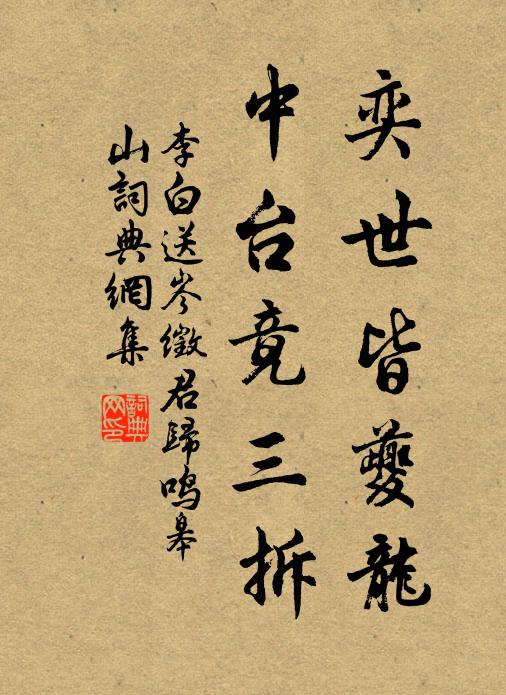 奕世皆夔龍
中台竟三拆
李白送岑徵君歸鳴皋
山詞典網集
詞典網印